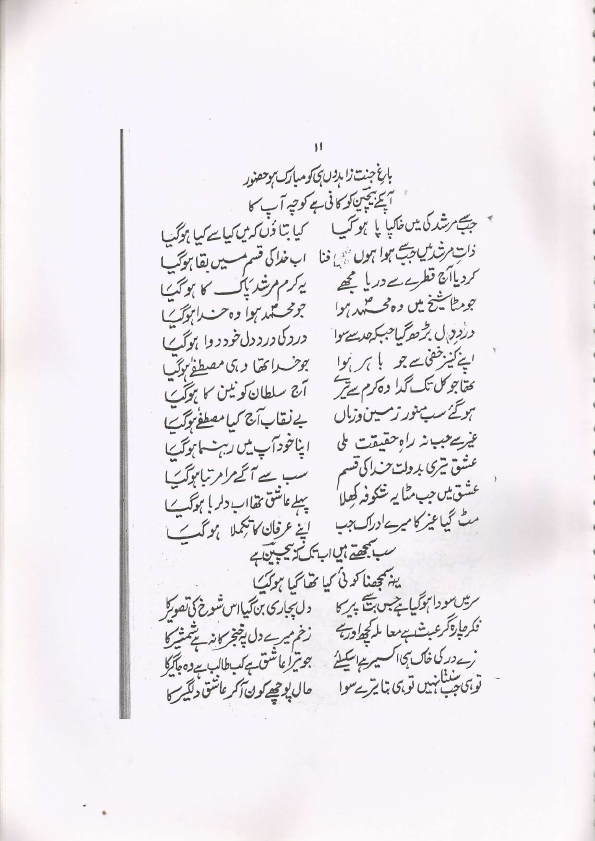 ۱۱
باغِ جنت زاہدوں ہی کو مبارک ہو حضور
آپکے بیچین کو کافی ہے کوچہ آپ کا
جب سے مرشد کی میں خاکپا ہو گیا کیا بتاؤں کہ میں کیا سے کیا ہو گیا
ذات مرشد میں جب سے ہوا ہوں فنا اب خدا کی قسم میں بقا ہو گیا
کر دیا آج قطرے سے دریا مجھے یہ کرم مرشد پاک کا ہو گیا
جو مٹا شیخ میں وہ محمدؐ ہوا جو محمدؐ ہوا وہ خدا ہو گیا
دردِ دل بڑھ گیا جبکہ حد سے سوا درد کی درد دل خود دوا ہو گیا
اپنے کنزِ خفی سے جو باہر ہوا جو خدا تھا وہی مصطفےٰ ہو گیا
تھا جو کل تک گدا وہ کرم سے ترے آج سلطان کونین کا ہو گیا
ہو گئے سب منور زمین و زماں بے نقاب آج کیا مصطفےٰ ہو گیا
غیر سے جب نہ راہِ حقیقت ملی اپنا خود آپ میں رہنما ہو گیا
عشق تیری بدولت خدا کی قسم سب سے آگے مرا مرتبا ہو گیا
عشق میں جب مٹا یہ شگوفہ کھلا پہلے عاشق تھا اب دلربا ہو گیا
مٹ گیا غیر کا میرے ادراک جب اپنے عرفان کا تکملا ہو گیا
سب سمجھتے ہیں اب تک کہ بیچین ہے
یہ نہ سمجھا کوئی کیا تھا کیا ہو گیا
سر میں سودا ہو گیا ہے جس بت بے پیر کا دل پجاری بن گیا اس شوخ کی تصویر کا
فکر چارہ گر عبث ہے معاملہ کچھ اور ہے زخم میرے دل پہ خنجر کا نہ ہے شمشیر کا
ترے در کی خاک ہی اکسیر ہے اسکے لئے جو ترا عاشق ہے کب طالب ہے وہ جاگیر کا
تو ہی جب سنتا نہیں تو ہی بتا تیرے سوا حال پوچھے کون آکر عاشق دلگیر کا